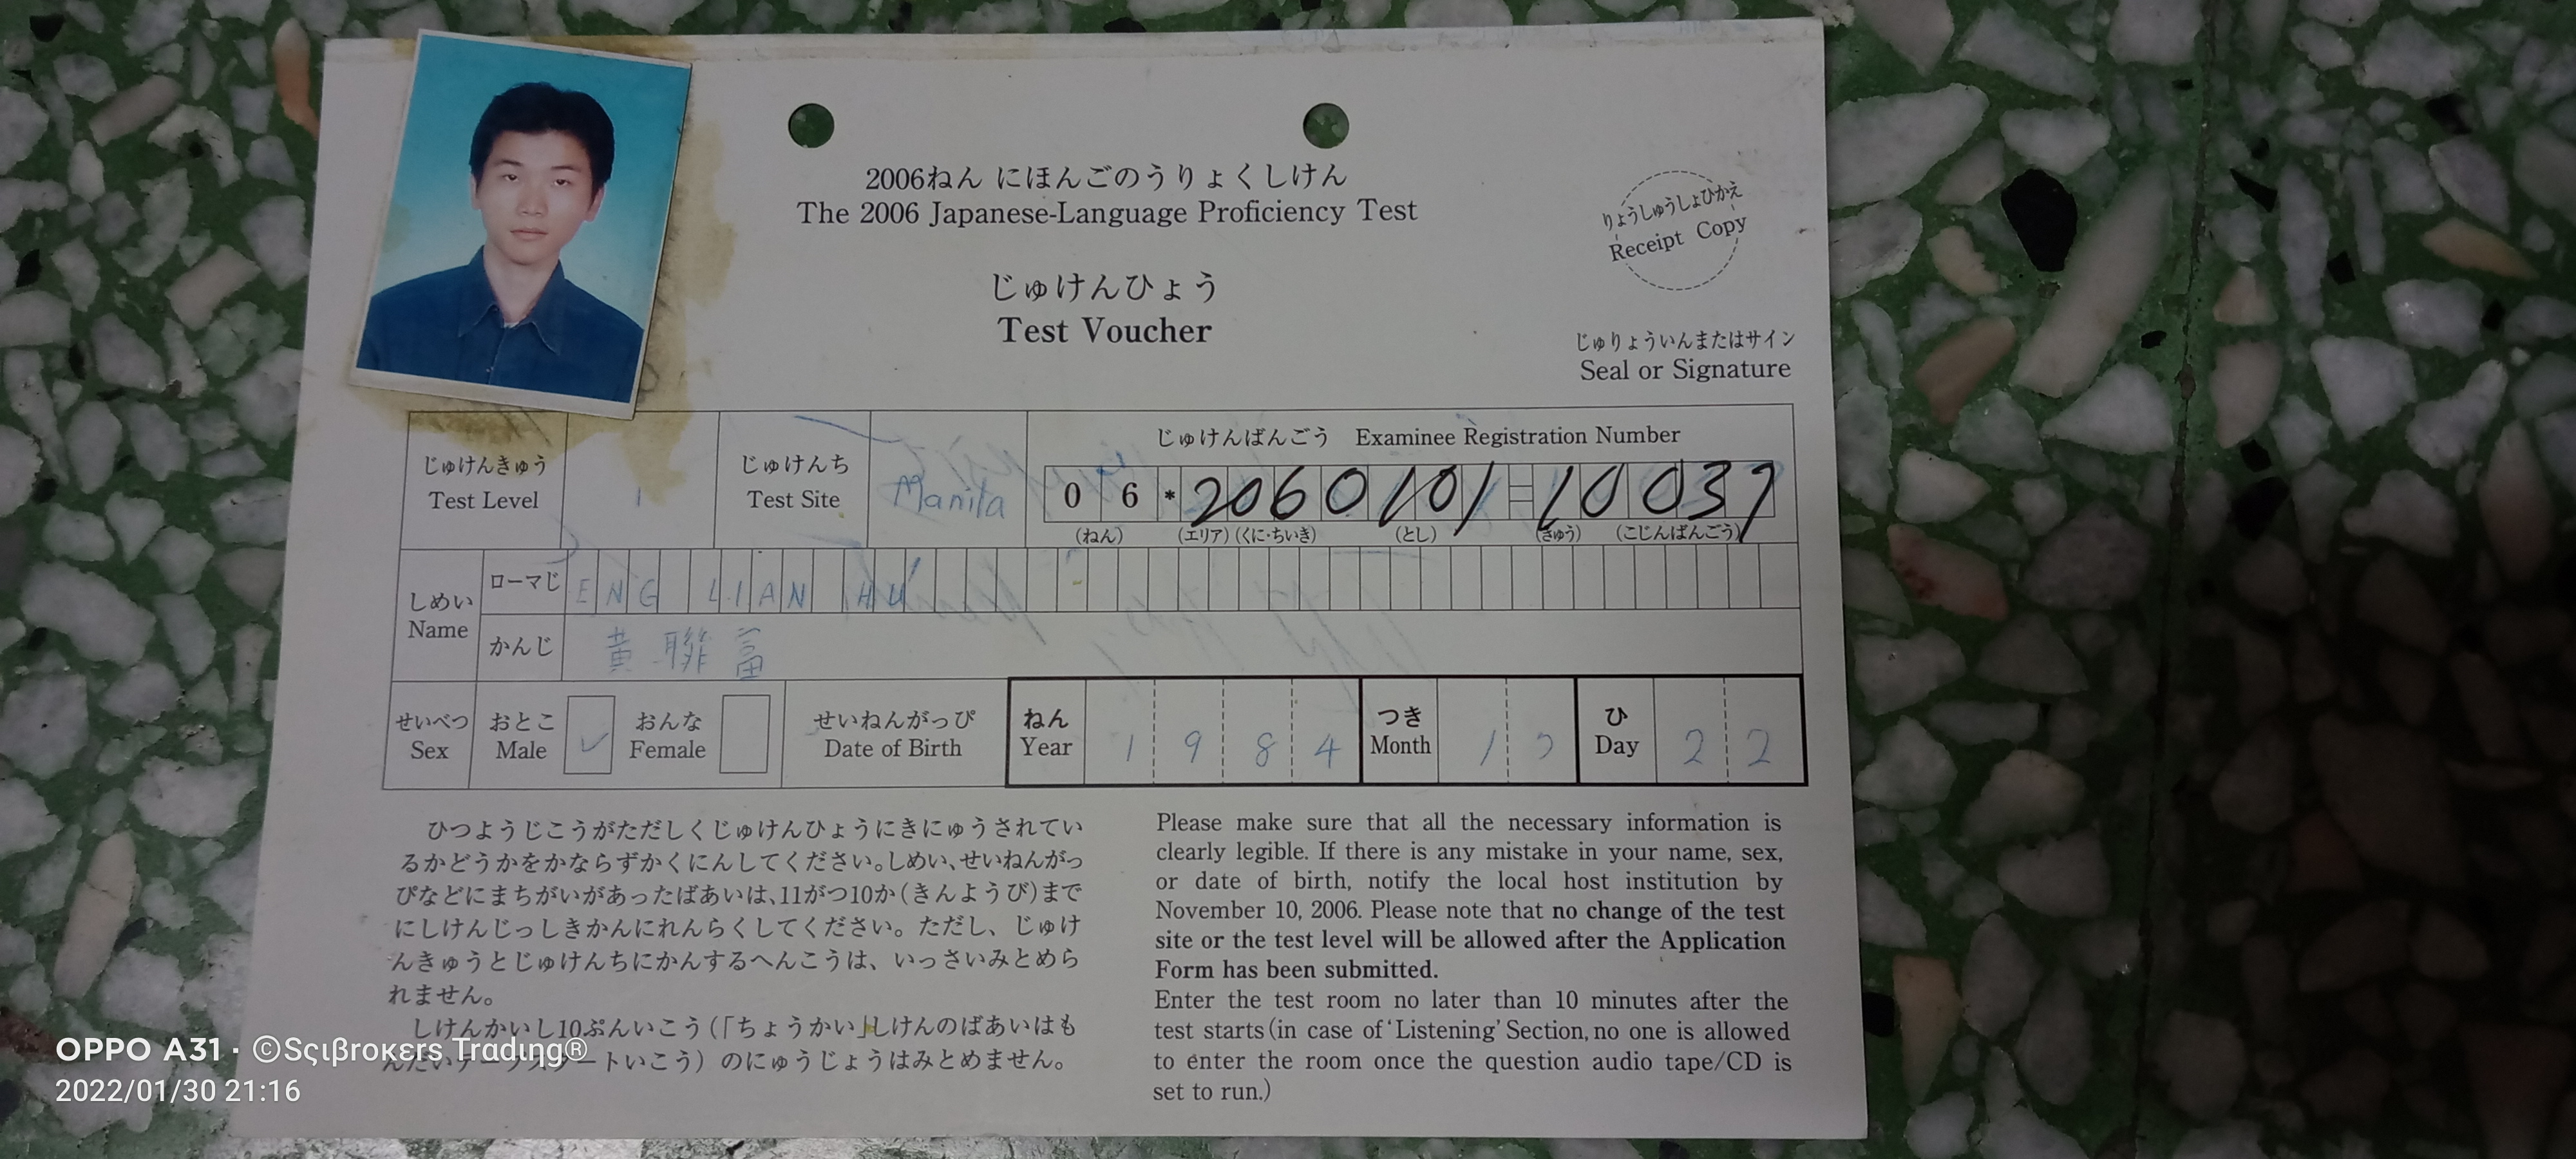 2006ねん にほんごのうりょくしけん
The 2006 Japanese-Language Proficiency Test
りょうしゅうしょひかえ
Receipt Copy
じゅけんひょう
Test Voucher
じゅりょういんまたはサイン
Seal or Signature
じゅけんきゅう
Test Level
1
じゅけんち
Test Site
Manila
じゅけんばんごう Examinee Registration Number
06*2060101-10037
(ねん) (エリア) (くに・ちいき) (とし) (きゅう) (こじんばんごう)
しめい
Name
ローマじ
ENG LIAN HU
かんじ
黄聯富
せいべつ
Sex
おとこ
Male
✓
おんな
Female
せいねんがっぴ
Date of Birth
ねん
Year
1984
つき
Month
1
ひ
Day
22
ひつようじこうがただしくじゅけんひょうにきにゅうされてい
るかどうかをかならずかくにんしてください。しめい、せいねんがっ
ぴなどにまちがいがあったばあいは、11がつ10か(きんようび)まで
にしけんじっしきかんにれんらくしてください。ただし、じゅけ
んきゅうとじゅけんちにかんするへんこうは、いっさいみとめら
れません。
しけんかいし10ぷんいこう(「ちょうかい」しけんのばあいはも
んだいテープスタートいこう) のにゅうじょうはみとめません。
Please make sure that all the necessary information is
clearly legible. If there is any mistake in your name, sex,
or date of birth, notify the local host institution by
November 10, 2006. Please note that no change of the test
site or the test level will be allowed after the Application
Form has been submitted.
Enter the test room no later than 10 minutes after the
test starts(in case of 'Listening' Section, no one is allowed
to enter the room once the question audio tape/CD is
set to run.)
OPPO A31 · ©Sςιβrοκεrs Trading®
2022/01/30 21:16